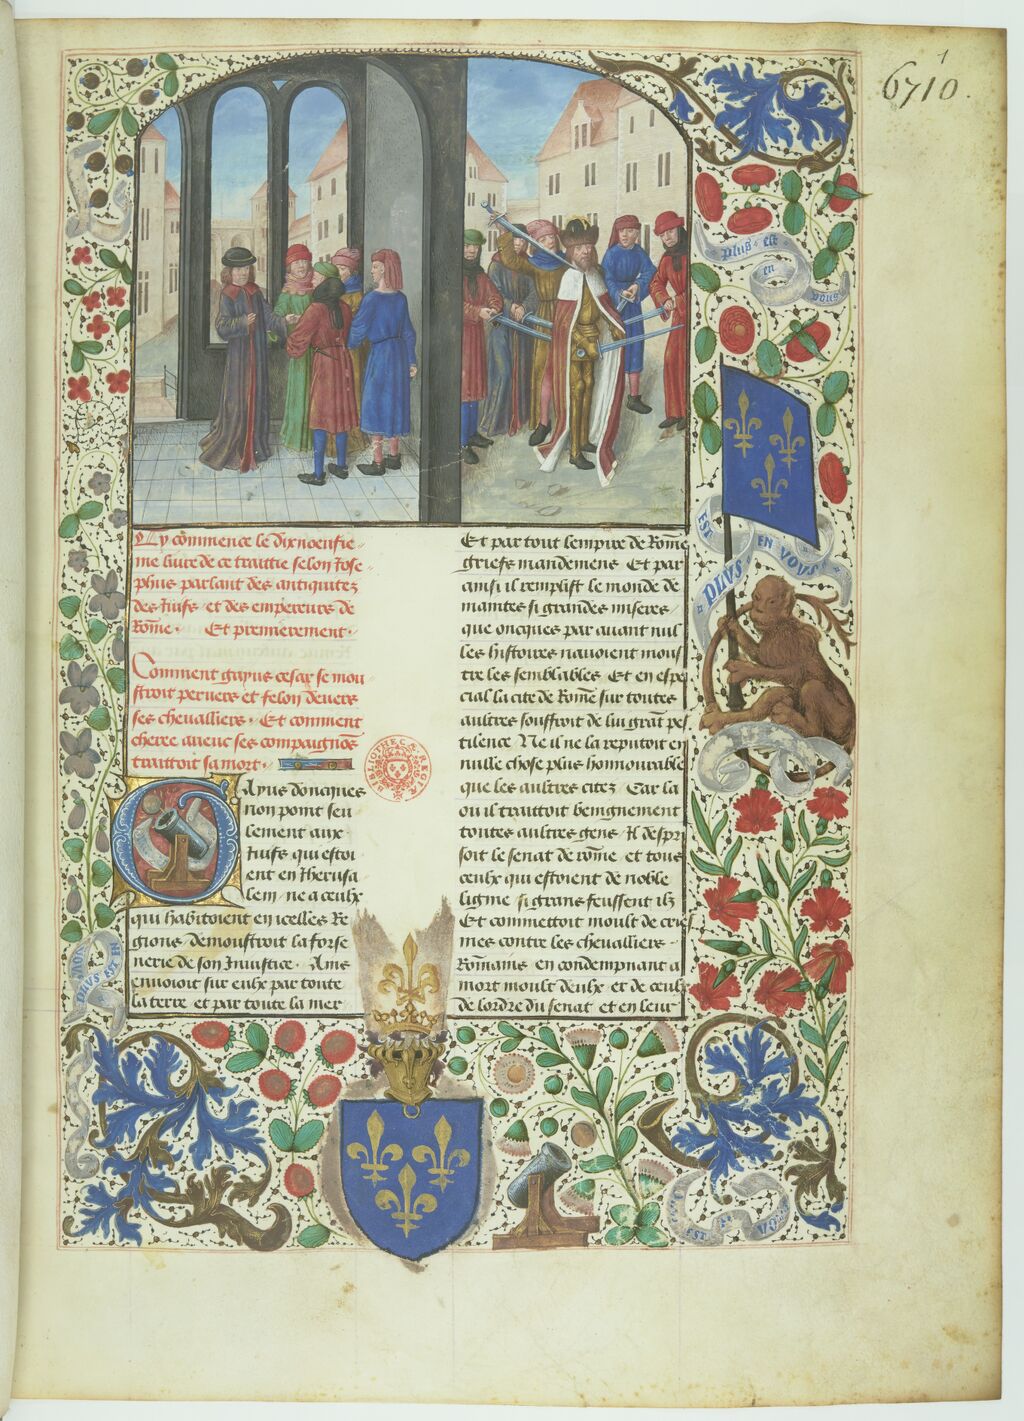 6710.
1
plus est
en
vous
PLVS
EST
EN VOVS
Cy cõmence le dixnoeufie
me liure de ce traittie selon Jose
phus parlant des antiquitez
des Juifs et des empereurs de
Rõme. Et premierement.
Comment gayus cesar se mou
stroit peruers et felon deuers
ses cheualliers. Et comment
cheree aueuc ses compaignõs
traittoit sa mort.
BIBLIOTHECÆ REGIÆ
Gayus doncques
non point seu
lement aux
Juifs qui estoi
ent en Iherusa
lem ne a ceulx
qui habitoient en icelles Re
gions demoustroit la forse
nerie de son Iniustice. Ains
enuoioit sur eulx par toute
la terre et par toute la mer
Et par tout lempire de Rõme
griefs mandemens Et par
ainsi il remplist le monde de
maintes si grandes miseres
que oncques par auant nul
les histoires nauoient mous
tre les semblables Et en espe
cial la cite de Rõme sur toutes
aultres souffroit de lui grãt pes
tilence Ne il ne la reputoit en
nulle chose plus honnourable
que les aultres citez Car la
ou il traittoit benignement
toutes aultres gens Il despri
soit le senat de rõme et tous
ceulx qui estoient de noble
ligme si grans feussent ilz
Et commettoit moult de cri
mes contre les cheualliers
Rõmains en condempnant a
mort moult deulx et de ceulx
de lordre du senat et en leur
PLVS EST EN
VOVS
EST
VOVS